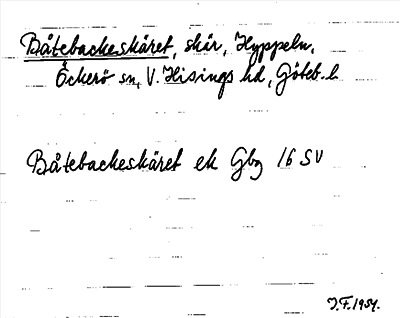 Båtebackeskäret, skär, Hyppeln,
Öckerö sn, V. Hisings hd, Göteb. l
Båtebackeskäret ek Gbg 16 SV
J.F. 1954.